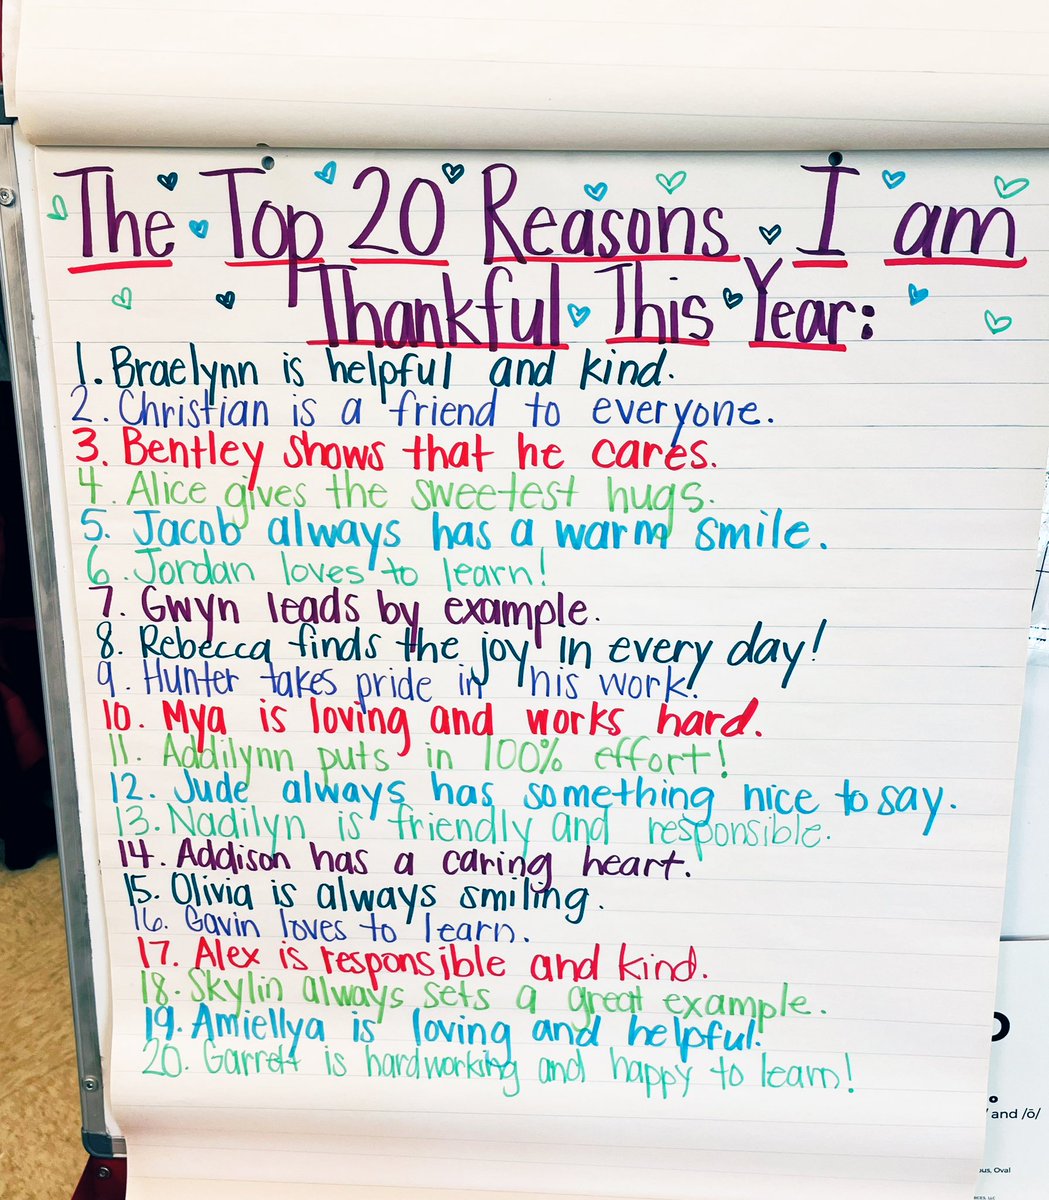 The Top 20 Reasons I am
Thankful This Year:
1. Braelynn is helpful and kind.
2. Christian is a friend to everyone.
3. Bentley shows that he cares.
4. Alice gives the sweetest hugs.
5. Jacob always has a warm smile.
6. Jordan loves to learn!
7. Gwyn leads by example.
8. Rebecca finds the joy in every day!
9. Hunter takes pride in his work.
10. Mya is loving and works hard.
11. Addilynn puts in 100% effort!
12. Jude always has something nice to say.
13. Nadilyn is friendly and responsible.
14. Addison has a caring heart!
15. Olivia is always smiling.
16. Gavin loves to learn.
17. Alex is responsible and kind.
18. Skylin always sets a great example.
19. Amiellya is loving and helpful.
20. Garrett is hardworking and happy to learn!
o
and /ō/
Oval